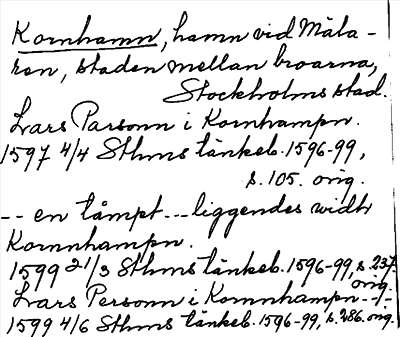 Kornhamn, hamn vid Mäla-
ren, staden mellan broarna,
Stockholms stad.
Lars Parsonn i Kornhampn.
1597 4/4 Sthms tänkeb. 1596-99,
s. 105. orig.
-- en tåmpt --- liggendes widh
Kornnhampn.
1599 21/3 Sthms tänkeb. 1596-99, s. 237.
orig.
Lars Personn i Kornnhampn --/--
1599 4/6 Sthms tänkeb. 1596-99, s. 286. orig.